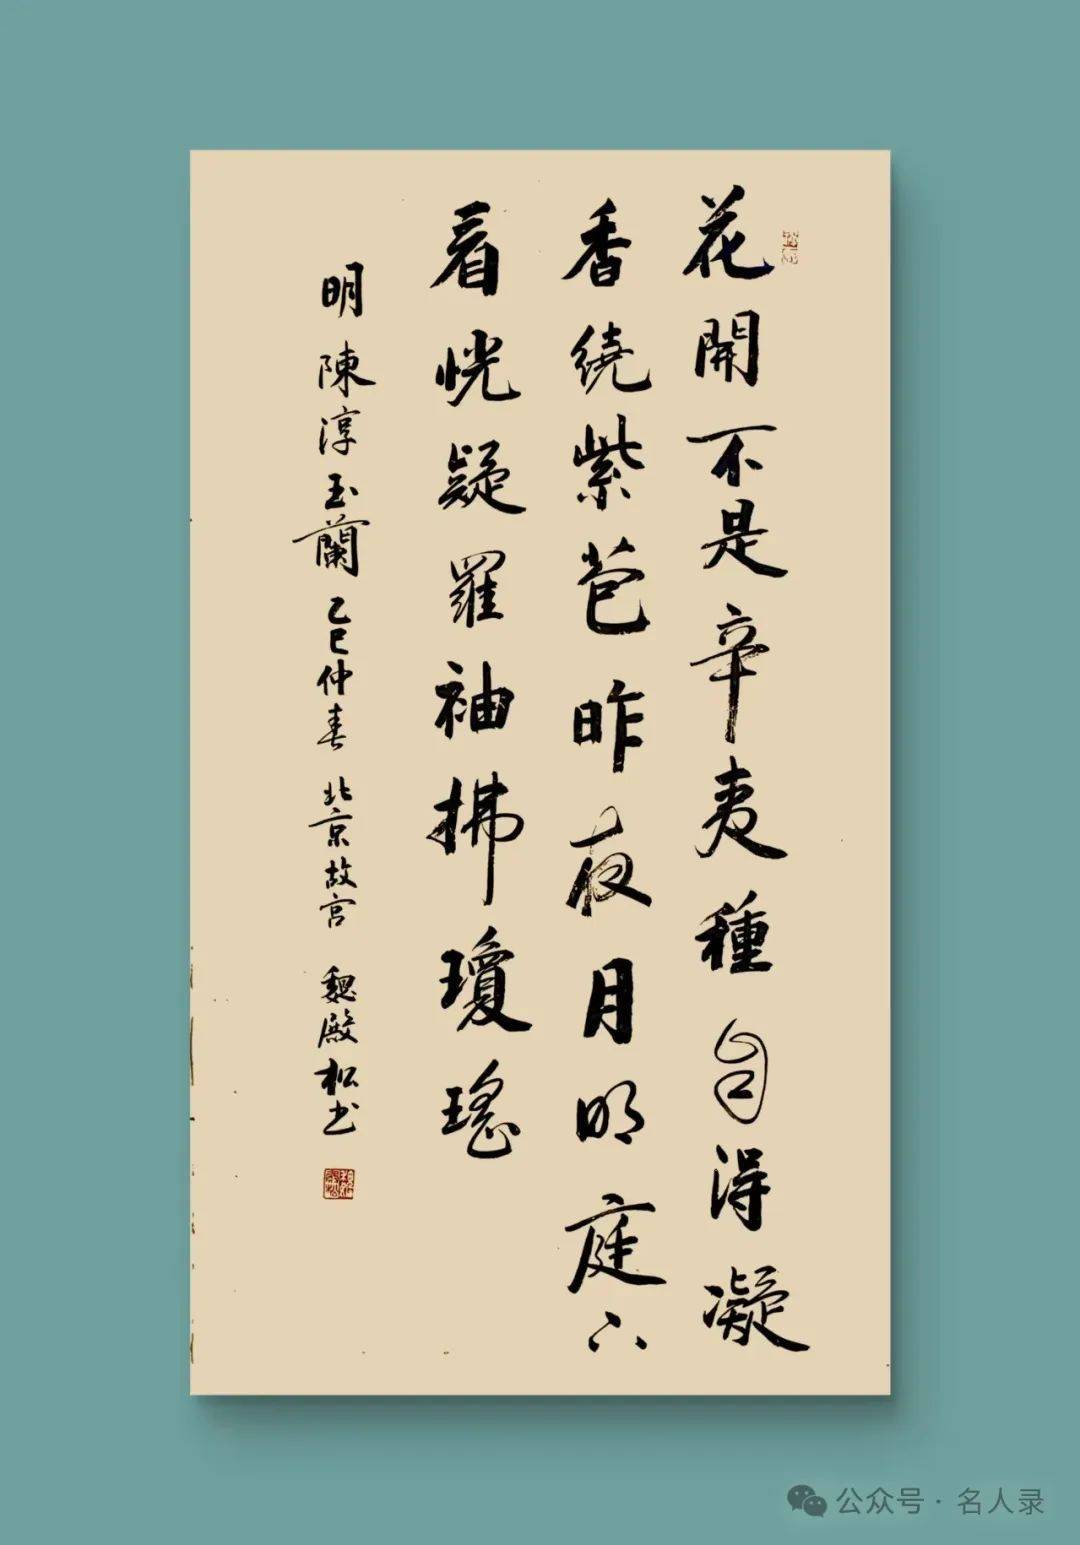 花開不是辛夷種自得凝
香繞紫苞昨夜月明庭下
看恍疑羅袖拂瓊瑤
明 陳淳玉蘭 乙巳仲春 北京故宫 魏殿松书
公众号 · 名人录